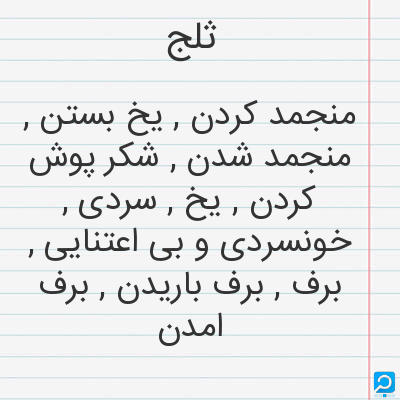 ثلج
منجمد کردن , یخ بستن ,
منجمد شدن , شکر پوش
کردن , یخ , سردی ,
خونسردی و بی اعتنایی ,
برف , برف باریدن , برف
امدن